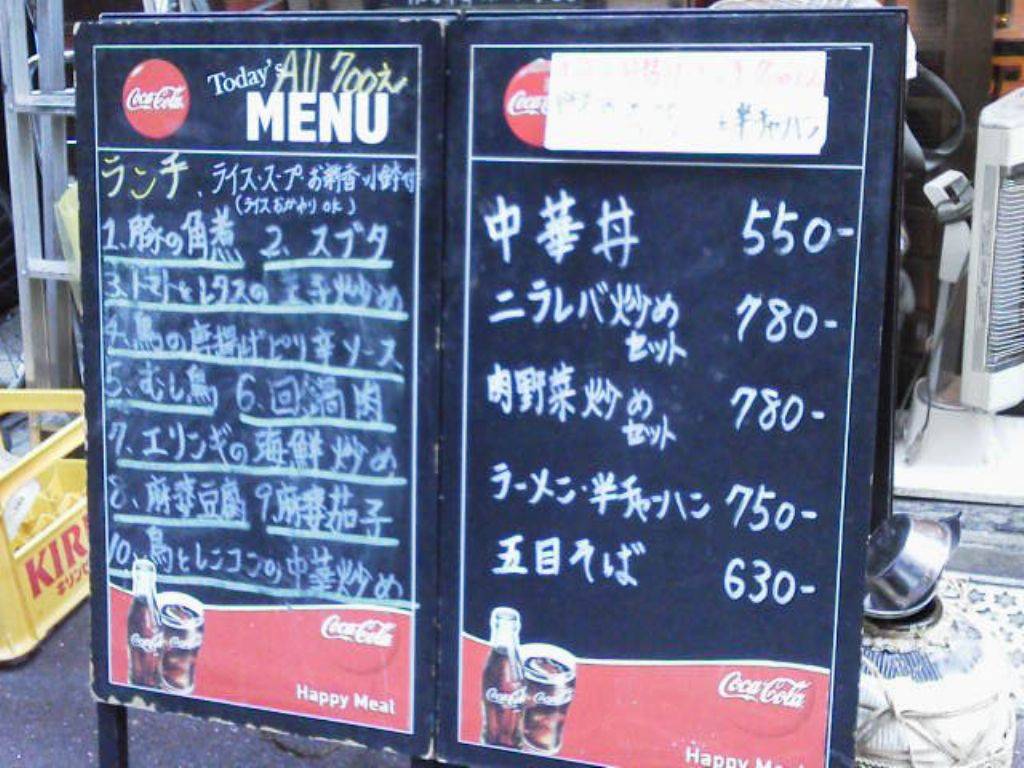 Coca-Cola
Today's All 700え
MENU
ランチ、ライス・スープ・お新香・小鉢付
(ライスおかわりOK)
1、豚の角煮 2、スブタ
3、トマトとレタスの玉子炒め
4、鳥の唐揚げピリ辛ソース
5、むし鳥 6、回鍋肉
7、エリンギの海鮮炒め
8、麻婆豆腐 9麻婆茄子
10、鳥とレンコンの中華炒め
Coca-Cola
Happy Meal
半チャーハン
中華丼 550-
ニラレバ炒め
セット 780-
肉野菜炒め
セット 780-
ラーメン・半チャーハン 750-
五目そば 630-
Coca-Cola
KIRI
キリン